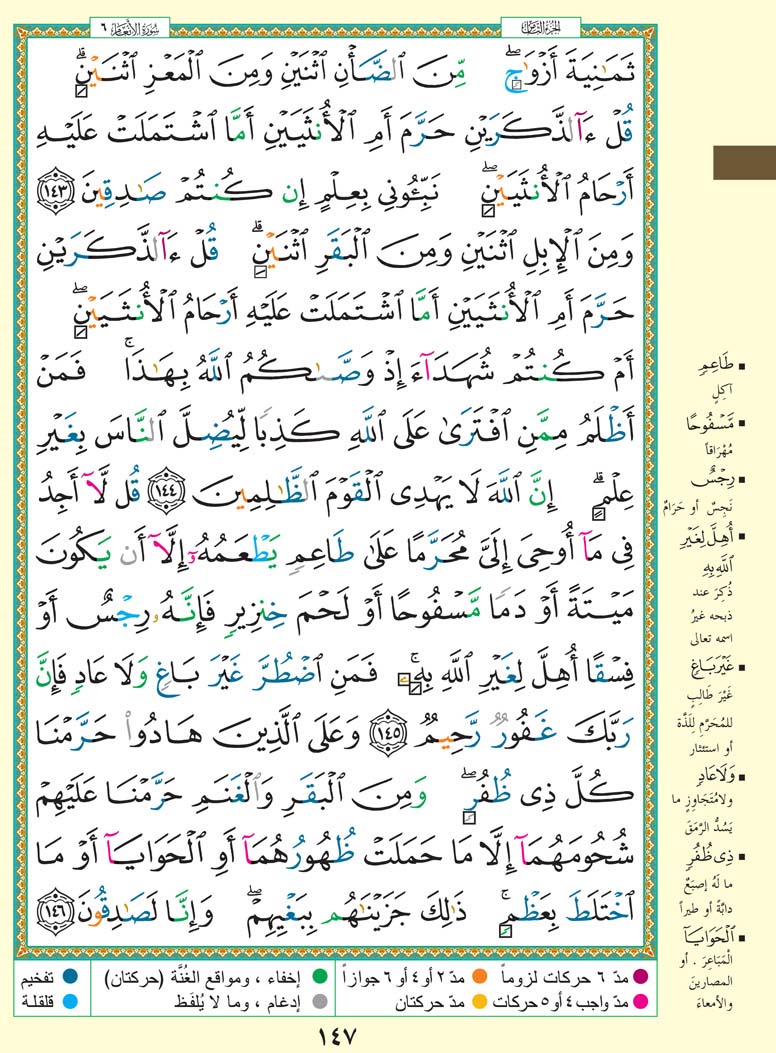 سُورَةُ الأَنْعَامِ ٦
الجُزءُ الثَّامِنُ
ثَمَٰنِيَةَ أَزْوَٰجٍ ۖ مِّنَ ٱلضَّأْنِ ٱثْنَيْنِ وَمِنَ ٱلْمَعْزِ ٱثْنَيْنِ ۗ
قُلْ ءَآلذَّكَرَيْنِ حَرَّمَ أَمِ ٱلْأُنثَيَيْنِ أَمَّا ٱشْتَمَلَتْ عَلَيْهِ
أَرْحَامُ ٱلْأُنثَيَيْنِ ۖ نَبِّـُٔونِى بِعِلْمٍ إِن كُنتُمْ صَٰدِقِينَ ١٤٣
وَمِنَ ٱلْإِبِلِ ٱثْنَيْنِ وَمِنَ ٱلْبَقَرِ ٱثْنَيْنِ ۗ قُلْ ءَآلذَّكَرَيْنِ
حَرَّمَ أَمِ ٱلْأُنثَيَيْنِ أَمَّا ٱشْتَمَلَتْ عَلَيْهِ أَرْحَامُ ٱلْأُنثَيَيْنِ ۖ
أَمْ كُنتُمْ شُهَدَآءَ إِذْ وَصَّىٰكُمُ ٱللَّهُ بِهَٰذَا ۚ فَمَنْ
أَظْلَمُ مِمَّنِ ٱفْتَرَىٰ عَلَى ٱللَّهِ كَذِبًا لِّيُضِلَّ ٱلنَّاسَ بِغَيْرِ
عِلْمٍ ۗ إِنَّ ٱللَّهَ لَا يَهْدِى ٱلْقَوْمَ ٱلظَّٰلِمِينَ ١٤٤ قُل لَّآ أَجِدُ
فِى مَآ أُوحِىَ إِلَىَّ مُحَرَّمًا عَلَىٰ طَاعِمٍ يَطْعَمُهُۥٓ إِلَّآ أَن يَكُونَ
مَيْتَةً أَوْ دَمًا مَّسْفُوحًا أَوْ لَحْمَ خِنزِيرٍ فَإِنَّهُۥ رِجْسٌ أَوْ
فِسْقًا أُهِلَّ لِغَيْرِ ٱللَّهِ بِهِۦ ۚ فَمَنِ ٱضْطُرَّ غَيْرَ بَاغٍ وَلَا عَادٍ فَإِنَّ
رَبَّكَ غَفُورٌ رَّحِيمٌ ١٤٥ وَعَلَى ٱلَّذِينَ هَادُوا۟ حَرَّمْنَا
كُلَّ ذِى ظُفُرٍ ۖ وَمِنَ ٱلْبَقَرِ وَٱلْغَنَمِ حَرَّمْنَا عَلَيْهِمْ
شُحُومَهُمَآ إِلَّا مَا حَمَلَتْ ظُهُورُهُمَآ أَوِ ٱلْحَوَايَآ أَوْ مَا
ٱخْتَلَطَ بِعَظْمٍ ۚ ذَٰلِكَ جَزَيْنَٰهُم بِبَغْيِهِمْ ۖ وَإِنَّا لَصَٰدِقُونَ ١٤٦
طَاعِمٍ
آكِلٍ
مَّسْفُوحًا
مُهْرَاقاً
رِجْسٌ
نَجِسٌ أو حَرَامٌ
أُهِلَّ لِغَيْرِ
ٱللَّهِ بِهِ
ذُكِرَ عند
ذبحه غيرُ
اسمه تعالى
غَيْرَ بَاغٍ
غَيْرَ طَالِبٍ
للمُحَرَّمِ لِلَذَّة
أو استئثار
وَلَا عَادٍ
ولا مُتَجَاوِزٍ ما
يَسُدُّ الرَّمَقَ
ذِى ظُفُرٍ
ما لَهُ إصبَعٌ
دابَّةً أو طيراً
ٱلْحَوَايَآ
الْمَبَاعِرَ . أو
المصارينَ
والأمعاءَ
مدّ ٦ حركات لزوماً
مدّ ٢ أو ٤ أو ٦ جوازاً
إخفاء ، ومواقع الغُنَّة (حركتان)
تفخيم
مدّ واجب ٤ أو ٥ حركات
مدّ حركتان
إدغام ، وما لا يُلفَظ
قلقلة
١٤٧